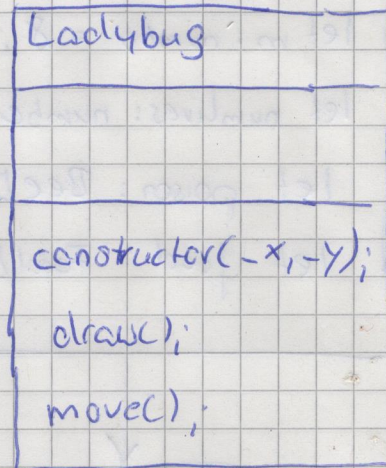 Ladybug
constructor(_x,_y);
draw();
move();